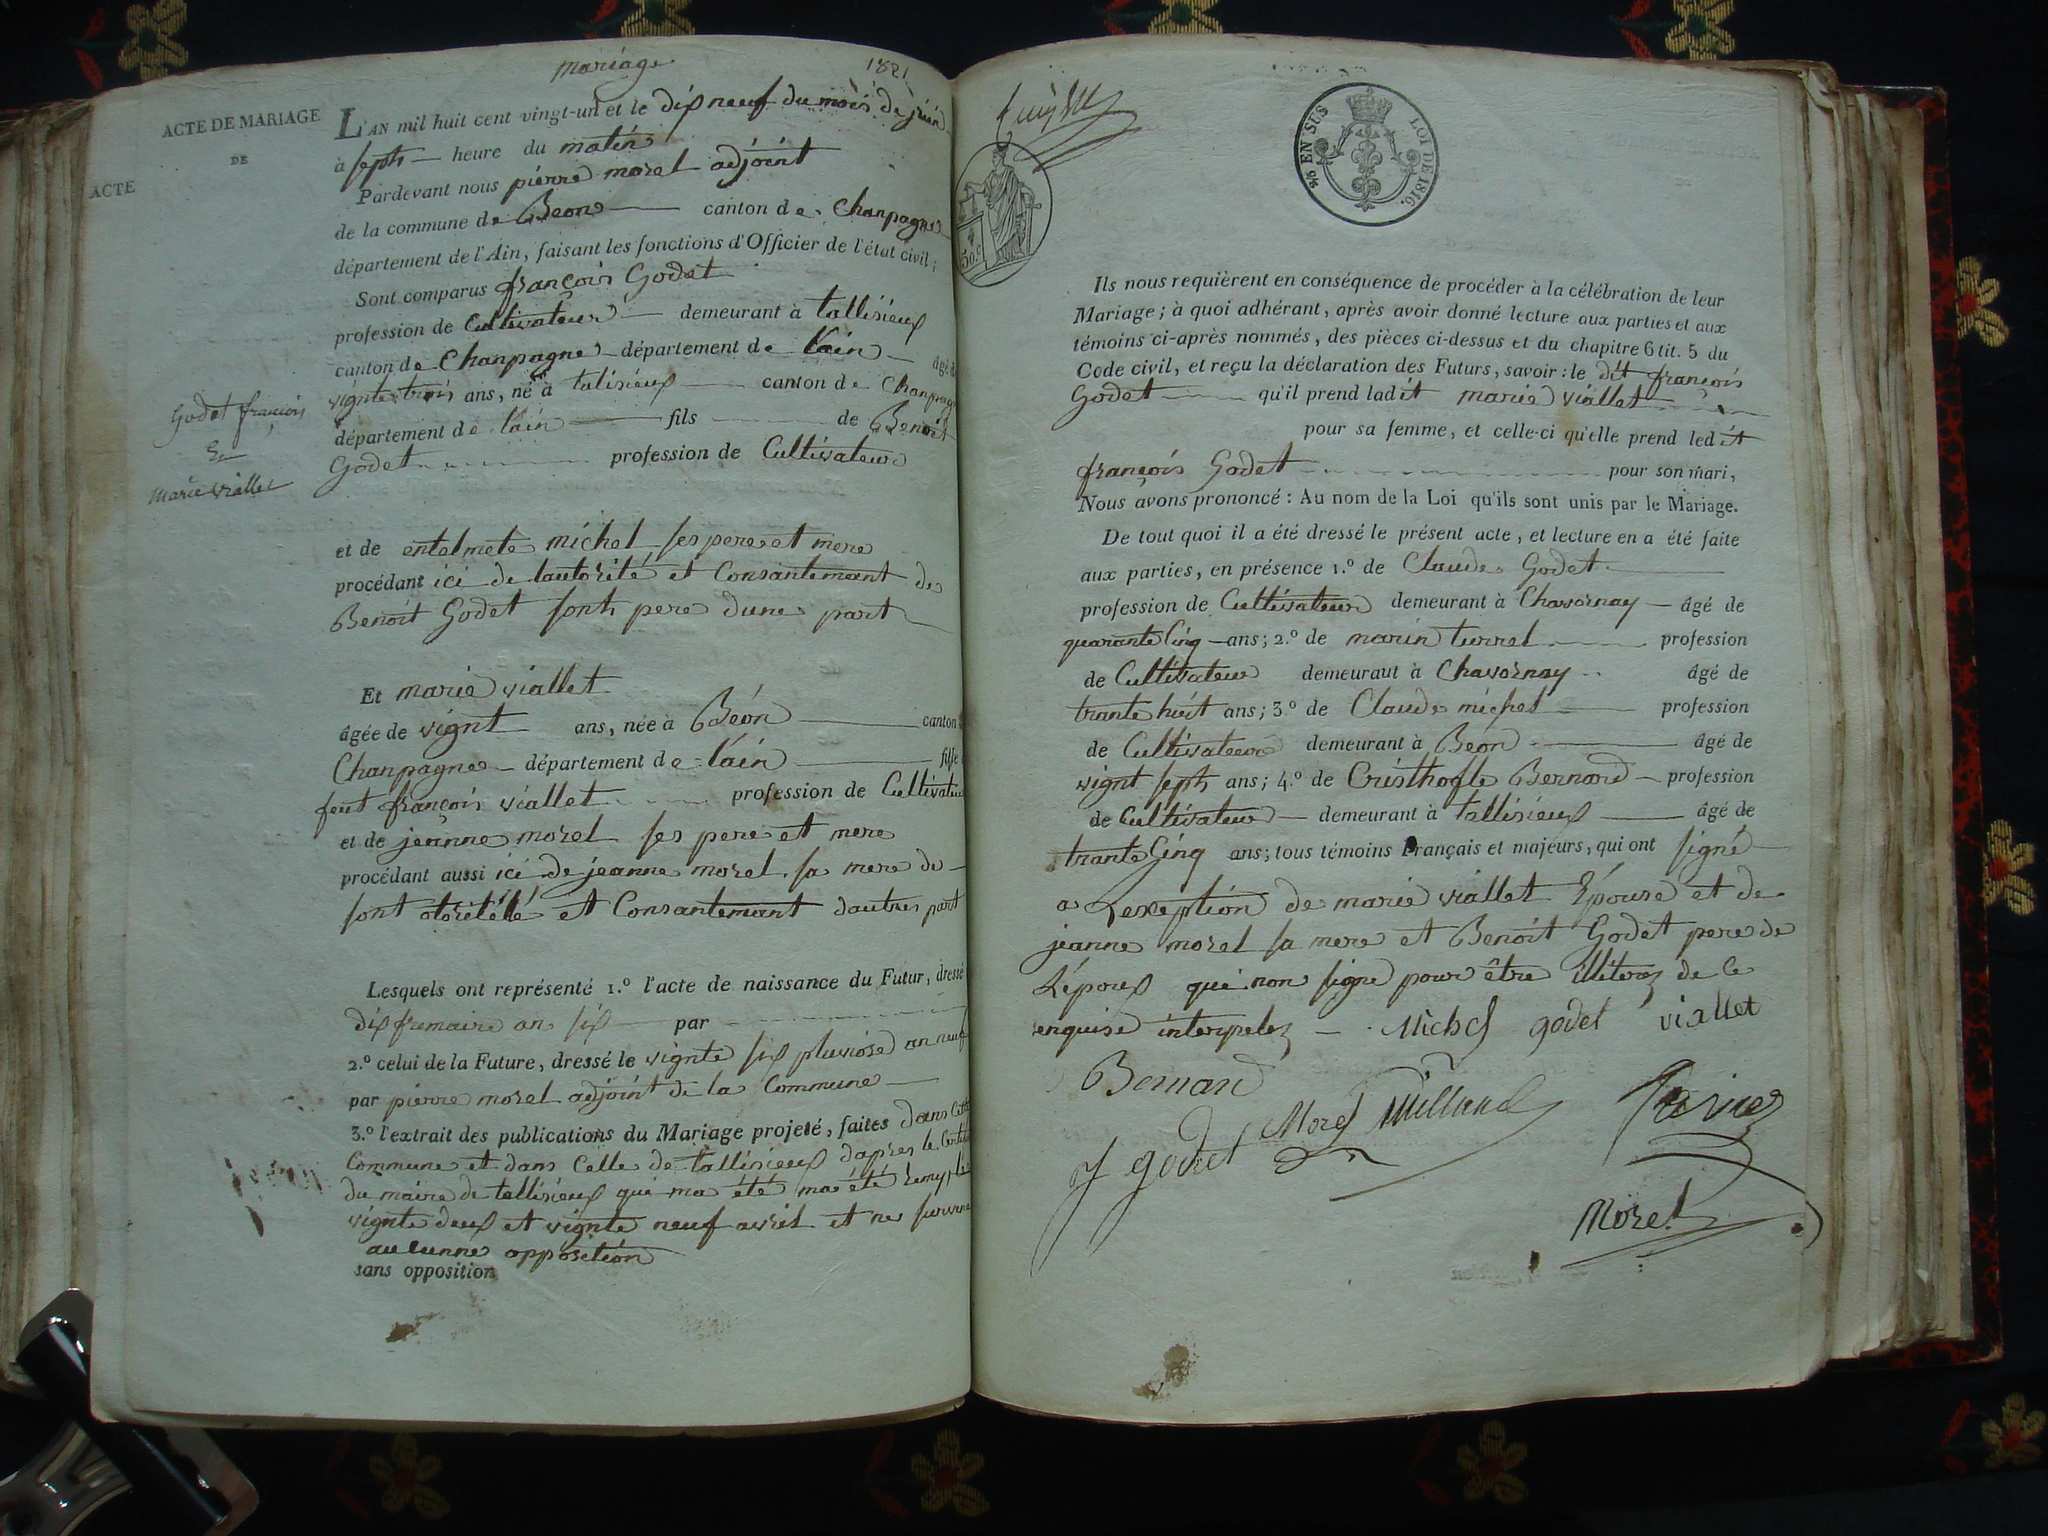 mariage
1821
ACTE DE MARIAGE
DE
ACTE
L'AN mil huit cent vingt-un et le dix neuf du mois de juin
à sept heure du matin
Pardevant nous pierre morel adjoint
de la commune de Beon canton de Chanpagne
département de l'Ain, faisant les fonctions d'Officier de l'état civil;
Sont comparus françois Godet
profession de Cultivateur demeurant à tallisieux
canton de Chanpagne département de lain âgé de
vignte trois ans, né à talisieux canton de Chanpagne
département de lain fils de Benoit
Godet profession de Cultivateur
Godet françois
Et
marie viallet
et de entelmete michel ses pere et mere
procédant ici de lautorité et Consantemant de
Benoit Godet sont pere dune part
Et marie viallet
âgée de vignt ans, née à Béon canton
Chanpagne département de lain fille
feut françois viallet profession de Cultivateur
et de jeanne morel ses pere et mere
procédant aussi ici de jeanne morel sa mere de
sont otoritélé et Consantemant dautre part
Lesquels ont représenté 1.º l'acte de naissance du Futur, dressé
dix fremaire an six par
2.º celui de la Future, dressé le vignte six pluviose an neuf
par pierre morel adjoint de la Commune
3.º l'extrait des publications du Mariage projeté, faites dans Cette
Commune et dans Celle de tallisieux dapres le
du maire de tallisieux qui ma été ma été
vignte deux et vignte neuf avril et ne
aucunne opposition
sans opposition
5/6 EN SUS LOI DE 1816.
50 c
Ils nous requièrent en conséquence de procéder à la célébration de leur
Mariage; à quoi adhérant, après avoir donné lecture aux parties et aux
témoins ci-après nommés, des pièces ci-dessus et du chapitre 6 tit. 5 du
Code civil, et reçu la déclaration des Futurs, savoir: le dit françois
Godet qu'il prend ladit marie viallet
pour sa femme, et celle-ci qu'elle prend ledit
françois Godet pour son mari,
Nous avons prononcé: Au nom de la Loi qu'ils sont unis par le Mariage.
De tout quoi il a été dressé le présent acte, et lecture en a été faite
aux parties, en présence 1.º de Claude Godet
profession de Cultivateur demeurant à Chavornay âgé de
quarante Cinq ans; 2.º de marin turrel profession
de Cultivateur demeurant à Chavornay âgé de
trante huit ans; 3.º de Claude michel profession
de Cultivateur demeurant à Béon âgé de
vignt sept ans; 4.º de Cristhofle Bernard profession
de Cultivateur demeurant à tallisieux âgé de
trante Cinq ans; tous témoins Français et majeurs, qui ont signé
a Lexeption de marie viallet Épouse et de
jeanne morel sa mere et Benoit Godet pere de
Lépoux qui non signe pour être illiterez de Ce
enquise interpelez Michel godet viallet
Bernard
f godet Morel
Morel